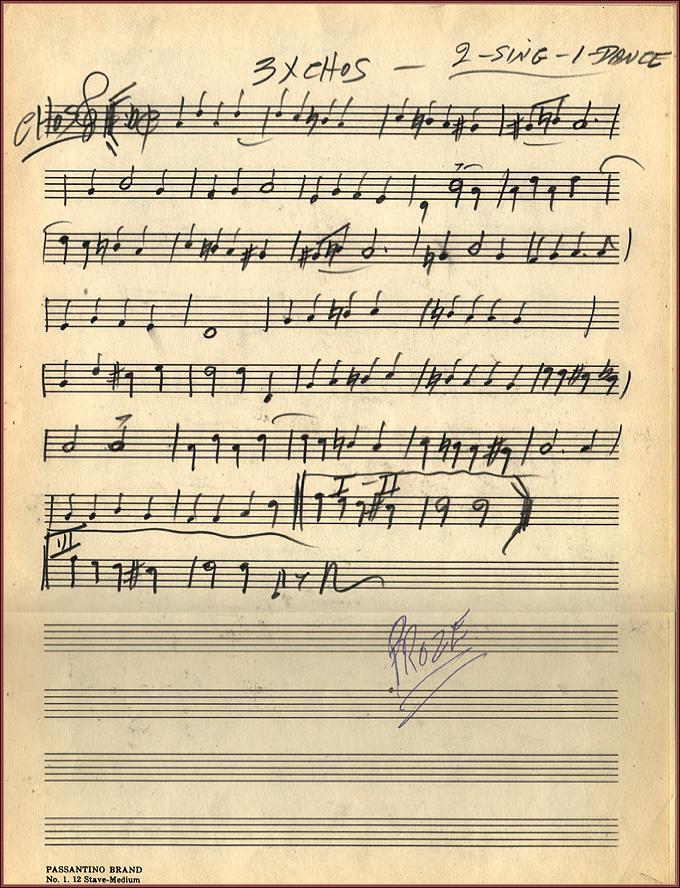 3 X CHOS — 2-SING-1-DANCE
CHOS
I - II
III
PROZE
PASSANTINO BRAND
No. 1. 12 Stave-Medium